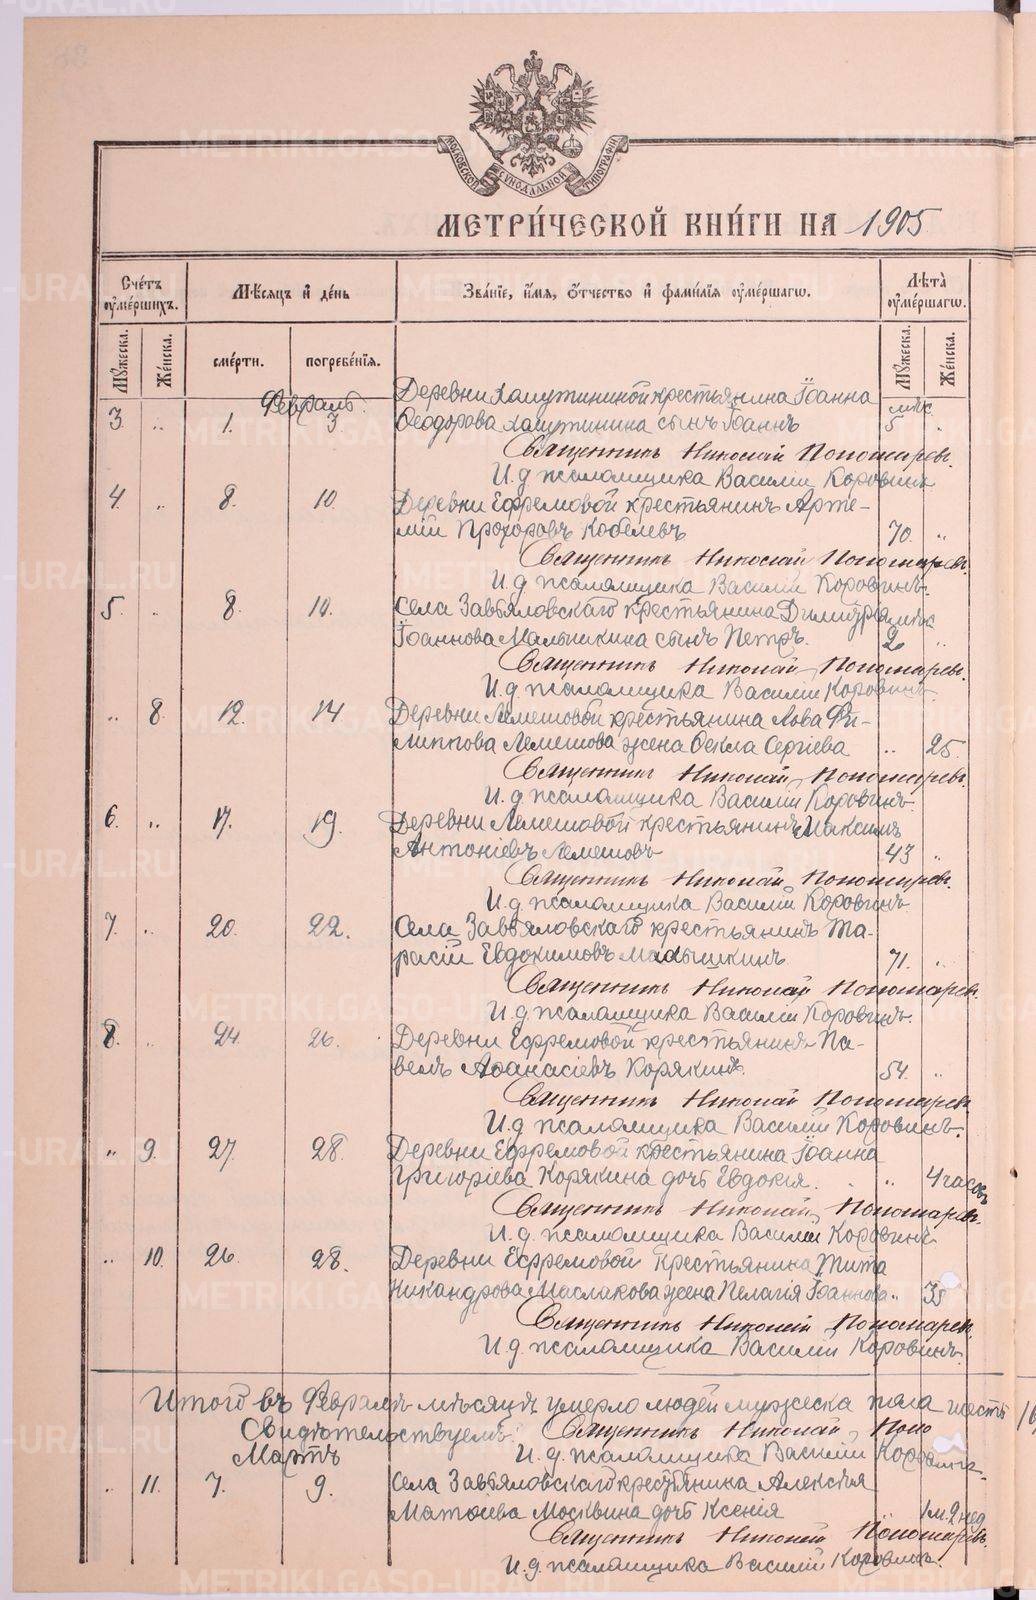 МОСКОВСКОЙ СѴНОДАЛЬНОЙ ТИПОГРАФІИ
МЕТРИ́ЧЕСКОЙ КНИ́ГИ НА 1905
Сче́тъ оуме́ршихъ. Мѣ́сяцъ и де́нь Зва́нїе, и́мя, о́тчество и фами́лїя оуме́ршагѡ. Лѣ́та оуме́ршагѡ.
Му́жеска. Же́нска. сме́рти. погребе́нїя. Му́жеска. Же́нска.
Февраль. Деревни крестьянина Іоанна
3. „ 1. 3. Ѳеодорова сынъ Іоаннъ 5 мѣс. „
Священникъ Николай Пономаревъ.
И. д. псаломщика Василій Коровинъ
4. „ 8. 10. Деревни Ефремовой крестьянинъ Арте-
мій Прохоровъ Кобелевъ 70. „
Священникъ Николай Пономаревъ.
И. д. псаломщика Василій Коровинъ.
5. „ 8. 10. Села Завьяловскаго крестьянина Димитрія мѣс
Іоаннова Малышкина сынъ Петръ. 2 „
Священникъ Николай Пономаревъ.
И. д. псаломщика Василій Коровинъ.
„ 8. 12. 14 Деревни Лемешовой крестьянина Лова Фи-
липпова Лемешова жена Ѳекла Сергіева „ 25.
Священникъ Николай Пономаревъ.
И. д. псаломщика Василій Коровинъ.
6. „ 17. 19. Деревни Лемешовой крестьянинъ Максимъ
Антоніевъ Лемешовъ 43 „
Священникъ Николай Пономаревъ.
И. д. псаломщика Василій Коровинъ.
7. „ 20. 22. Села Завьяловскаго крестьянинъ Та-
расій Евдокимовъ Малышкинъ 71. „
Священникъ Николай Пономаревъ.
И. д. псаломщика Василій Коровинъ.
8. „ 24. 26. Деревни Ефремовой крестьянинъ Па-
велъ Аѳанасіевъ Корякинъ. 54. „
Священникъ Николай Пономаревъ
И. д. псаломщика Василій Коровинъ.
„ 9. 27. 28. Деревни Ефремовой крестьянина Іоанна
Григоріева Корякина дочь Евдокія. „ 4 часовъ
Священникъ Николай Пономаревъ.
И. д. псаломщика Василій Коровинъ.
„ 10. 26. 28. Деревни Ефремовой крестьянина Тита
Никандрова Маслакова жена Пелагія Іоаннова „
Священникъ Николай Пономаревъ.
И. д. псаломщика Василій Коровинъ.
Итого въ Февралѣ мѣсяцѣ умерло людей мужеска пола шесть
Свидѣтельствуемъ: Священникъ Николай Поно
Мартъ И. д. псаломщика Василій Коровинъ.
„ 11. 7. 9. Села Завьяловскаго крестьянина Алексѣя
Матѳіева Москвина дочь Ксенія 1 м. 2 нед
Священникъ Николай Пономаревъ.
И. д. псаломщика Василій Коровинъ.
METRIKI.GASO-URAL.RU